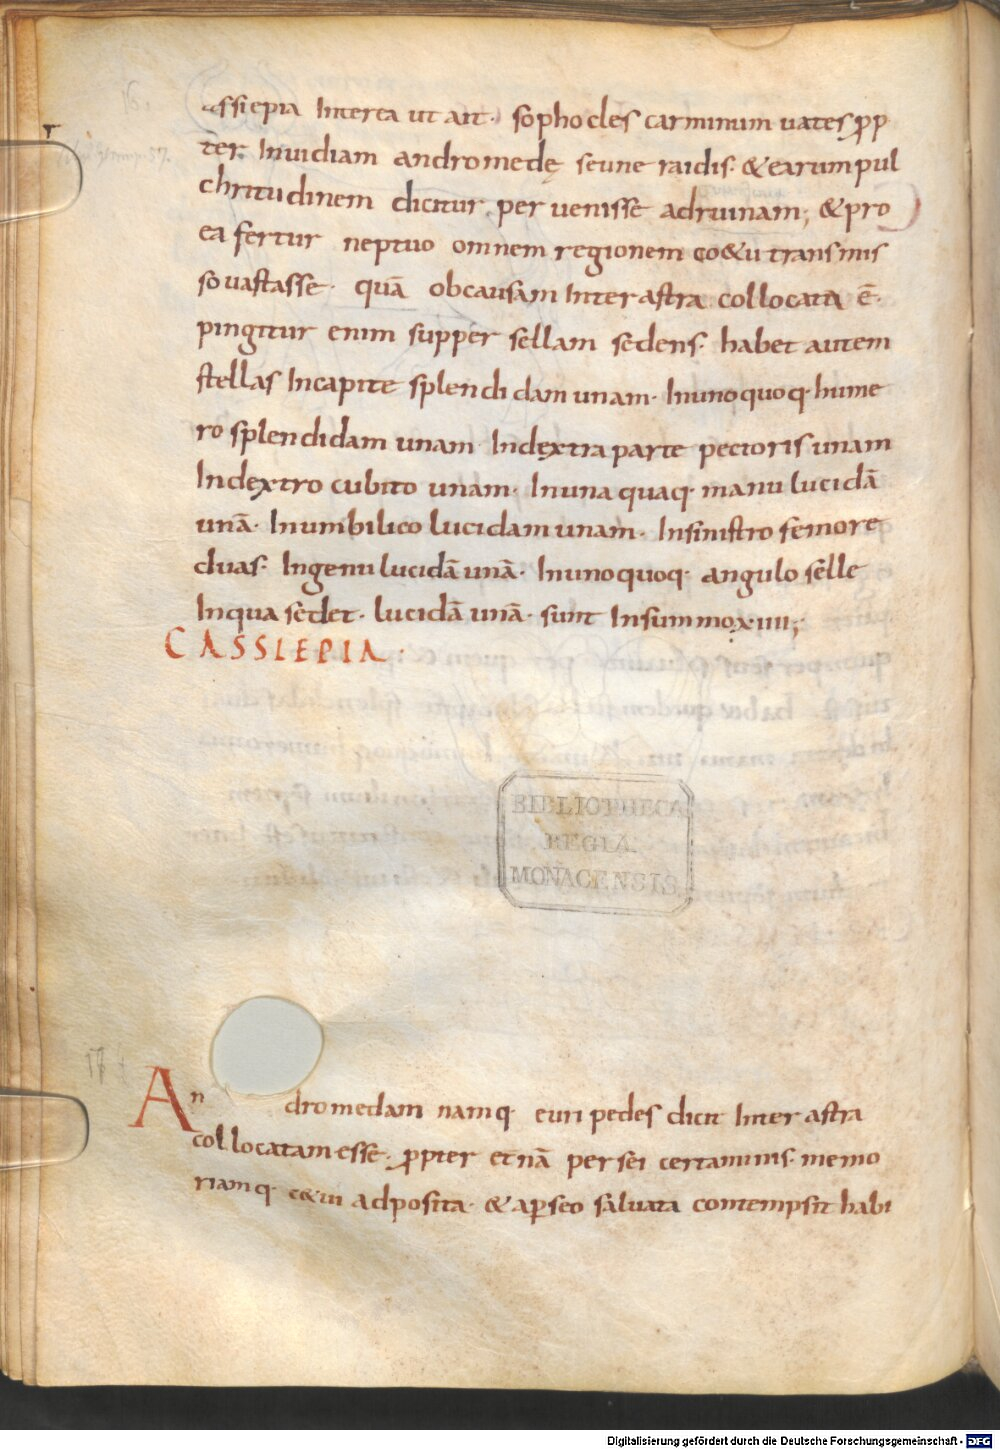 assiepia Interea ut ait· sophocles carminum uates ꝓp
ter Inuidiam andromedę seune raidis· &earum pul
chritudinem dicitur peruenisse adruinam; &pro
ea fertur neptuo omnem regionem co&u transmis
so uastasse· quā obcausam Inter astra collocata ē·
pingitur enim supper sellam sedens· habet autem
stellas Incapite splendidam unam· Inunoquoq· hume
ro splendidam unam Indextra parte pectoris unam
Indextro cubito unam· Inuna quaq· manu lucidā
unā· Inumbilico lucidam unam· Insinistro femore
duas· Ingenu lucidā unā· Inunoquoq· angulo selle
Inqua sedet· lucidā unā· sunt Insummo xiiii;
CASSIEPIA·
BIBLIOTHECA
REGIA
MONACENSIS
17
An dromedam namq· euripedes dicit Inter astra
collocatam esse· ꝓpter etnā persei certaminis· memo
riamq· c&ui adposita· & aperseo saluata contempsit habi
Digitalisierung gefördert durch die Deutsche Forschungsgemeinschaft - DFG